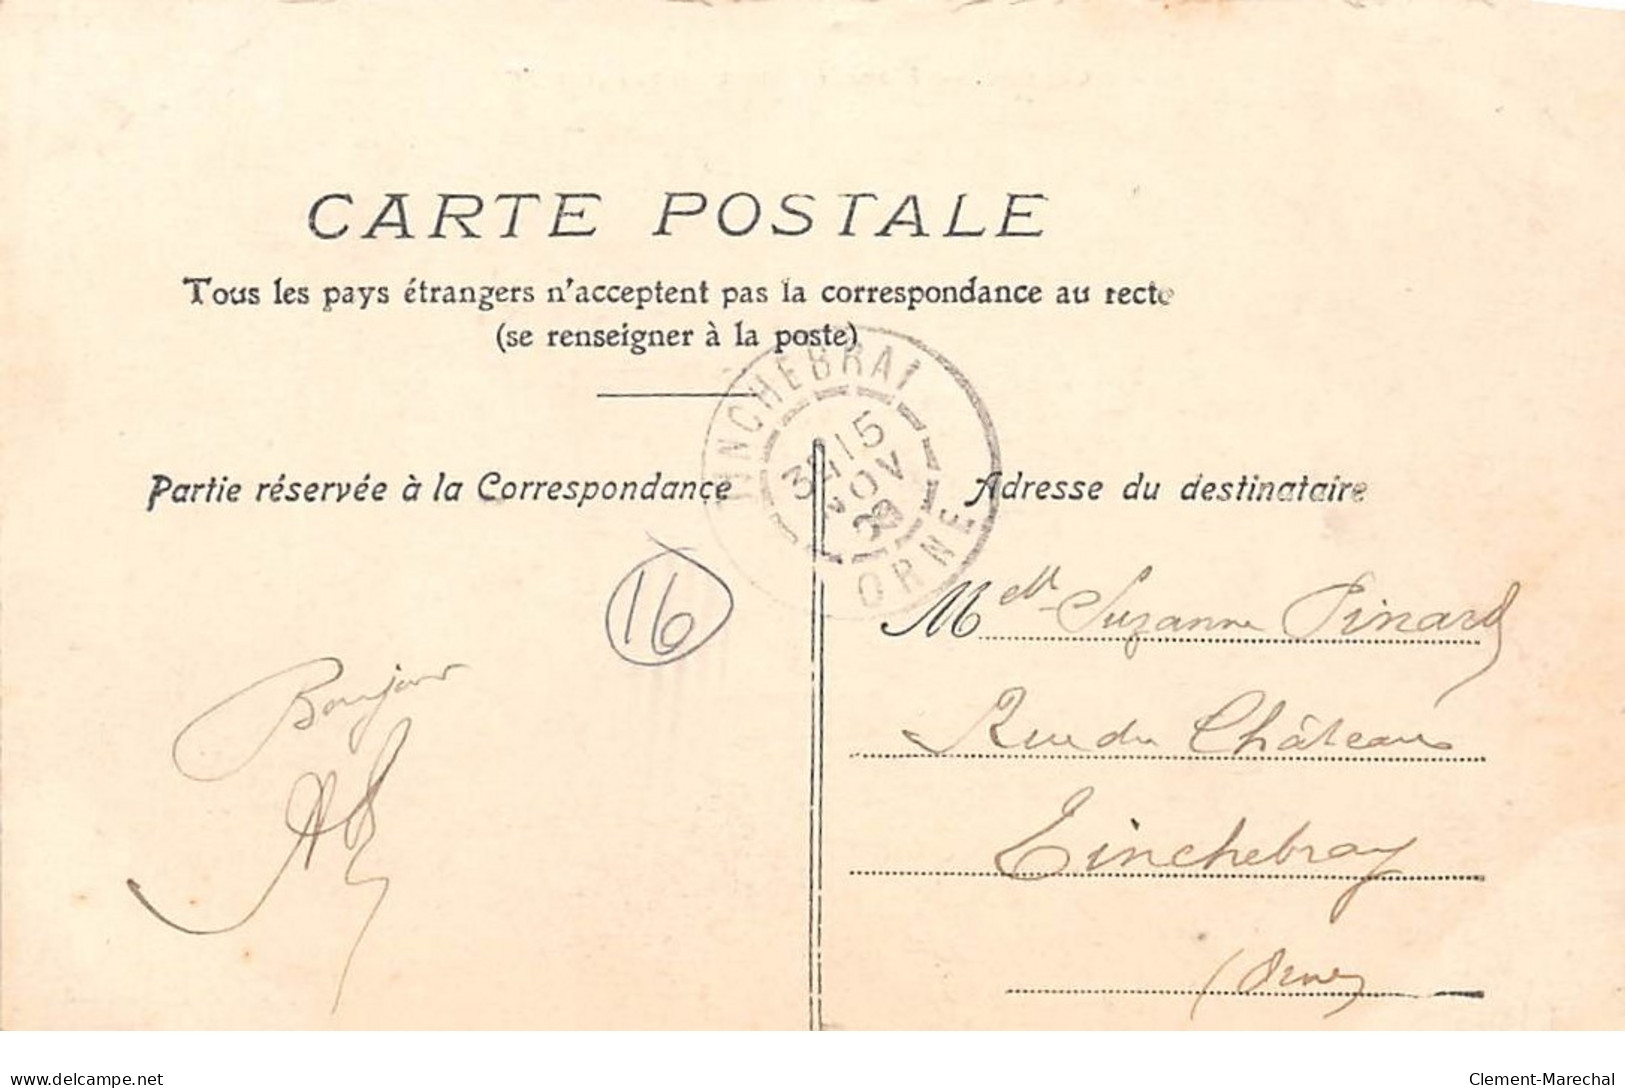 CARTE POSTALE
Tous les pays étrangers n'acceptent pas la correspondance au recto
(se renseigner à la poste)
TINCHEBRAI
15
NOV
ORNE
Partie réservée à la Correspondance
Adresse du destinataire
16
Bonjour
Melle Suzanne Pinard
Rue du Château
Tinchebray
(Orne)
delcampe.net
Clement-Marechal